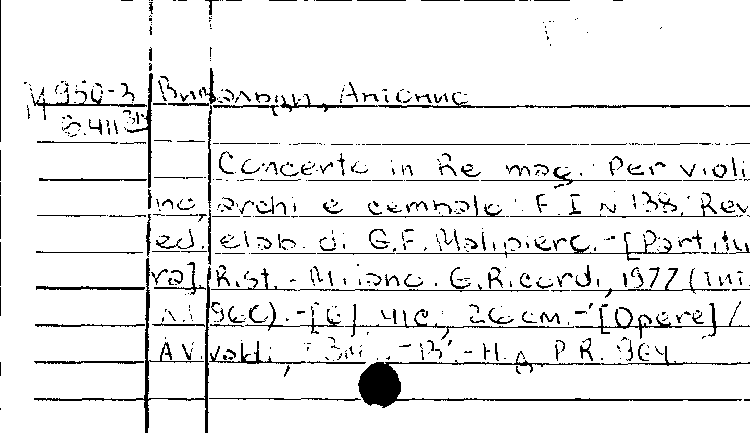 М 950-3 Вивальди, Антонио
Concerto in Re mag. Per violi
no, archi e cembalo. F. I N 138. Rev.
ed. elab. di G.F. Malipiero. - [Partitu
ra]. Rist. - Milano. G. Ricordi, 1977 (
1960). - [6], 41c., 26 cm. - [Opere] /
A. Vivaldi, P.R. 964.